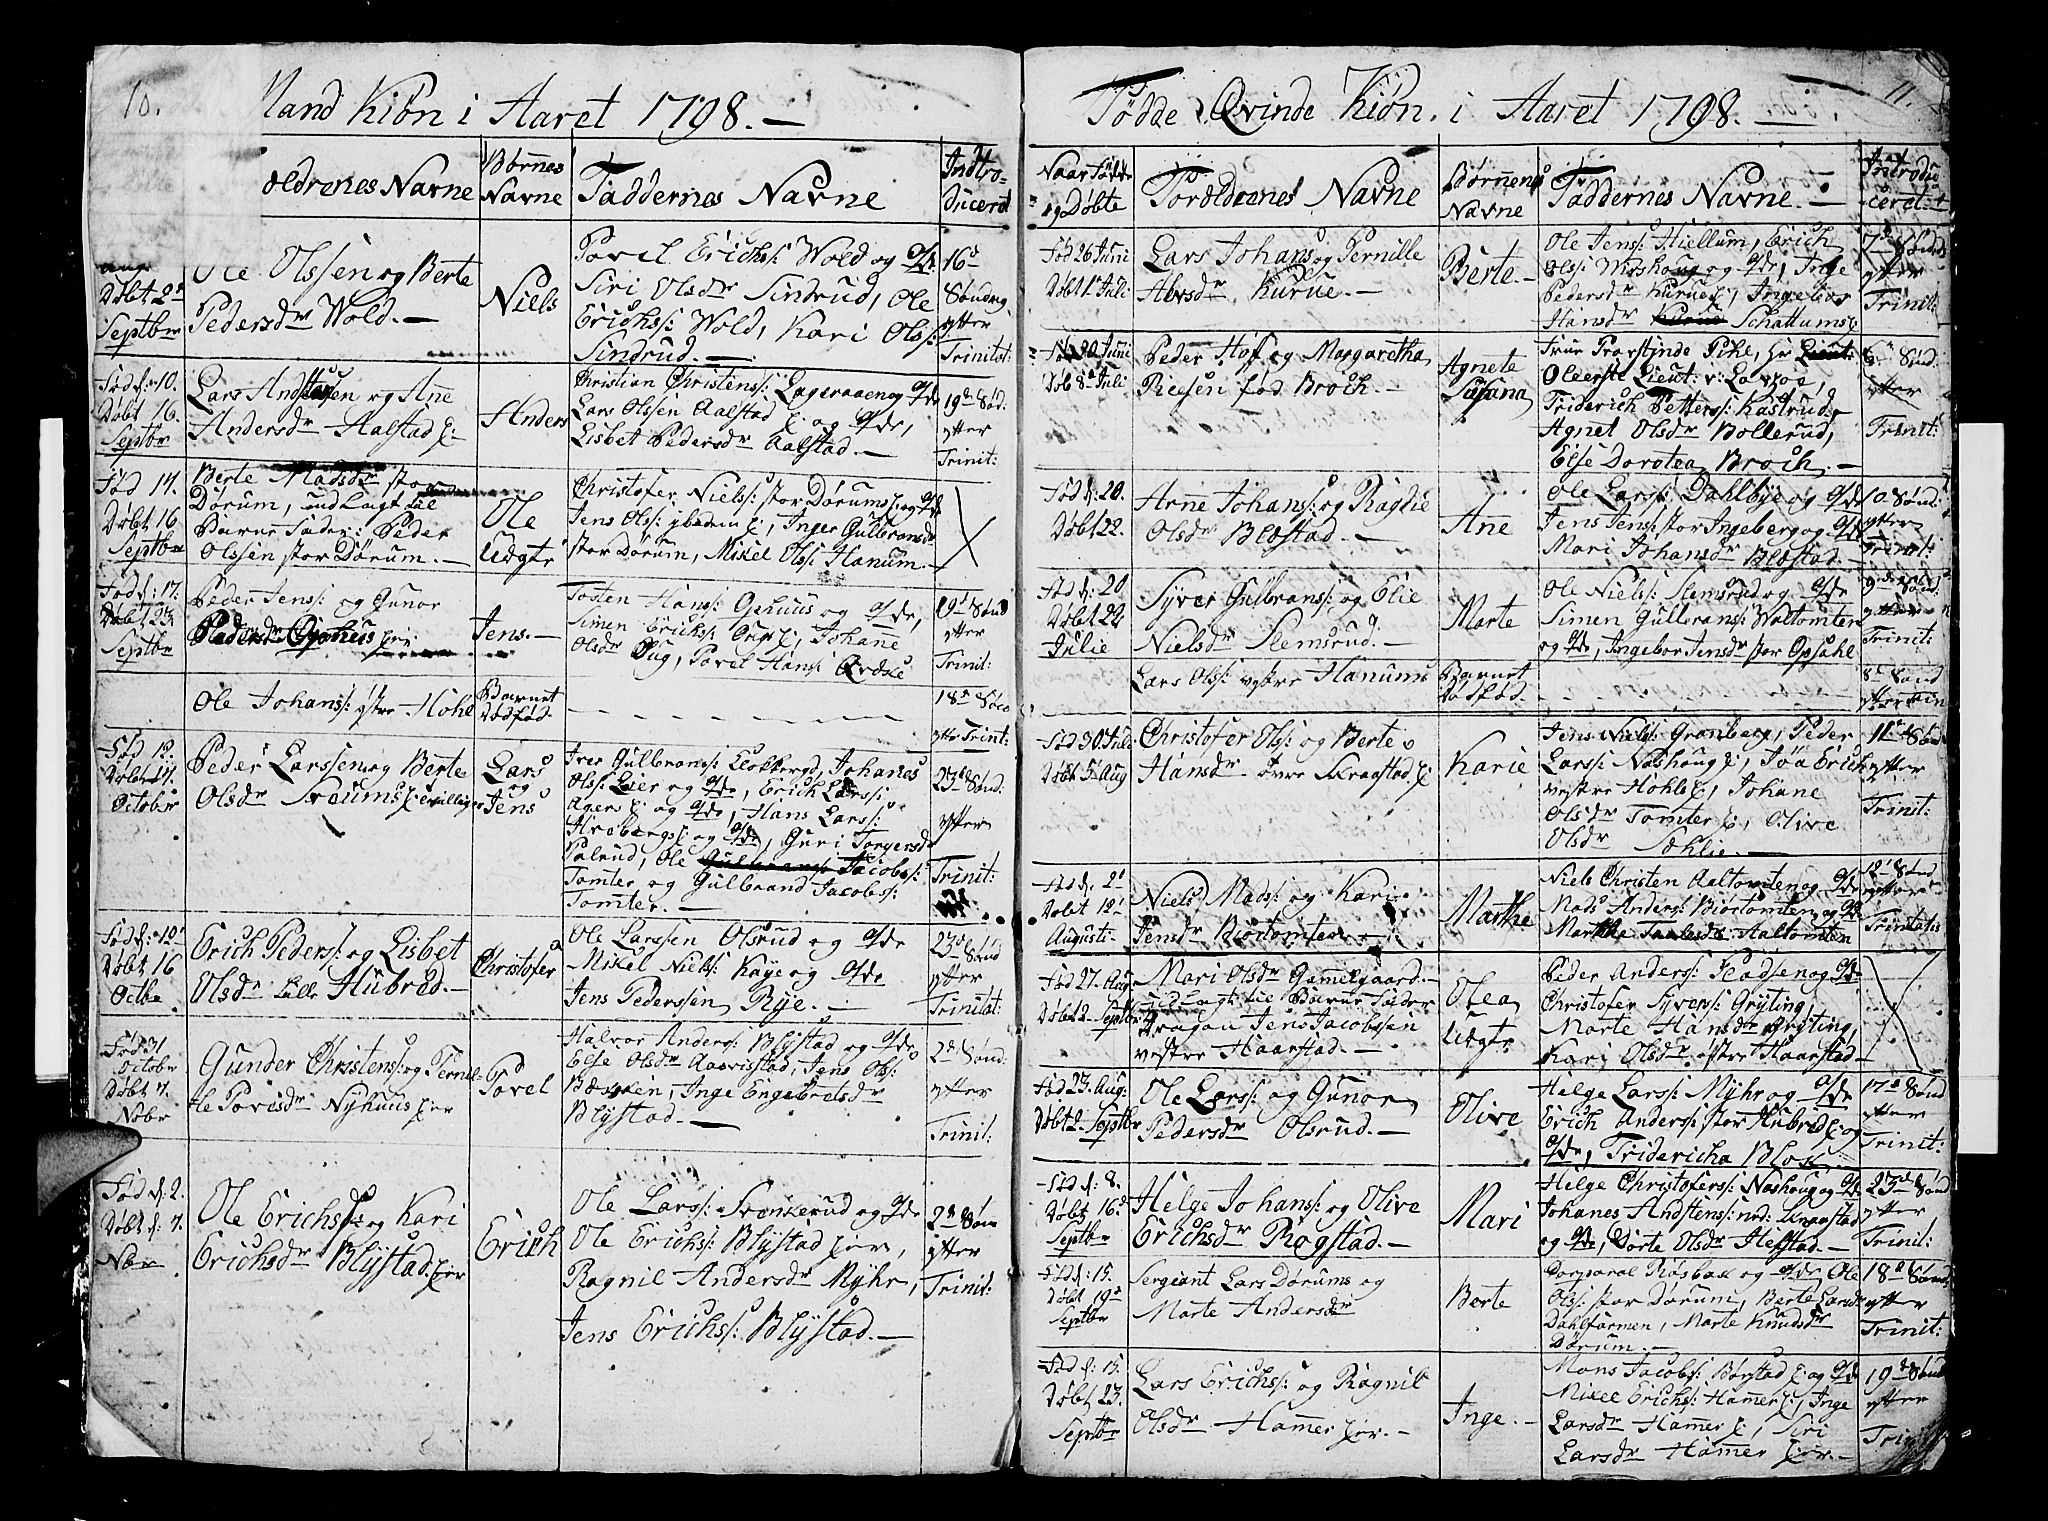 10.
Mand Kiön i Aaret 1798. —
oeldrenes Navne
Børnes Navne
Faddernes Navne
Introducered
Aug.
Døbt 2d
Septbr
Ole Olssen og Berte
Pedersdr Wold. —
Niels
Povel Erichs: Wold og q/de
Siri Olsdr Sindrud, Ole
Erichs: Wold, Kari Ols:
Sindrud. —
16d
Søndag
efter
Trinitat:
Fød d: 10.
Døbt 16.
Septbr
Lars Andstensen og Ane
Andersdr Aalstad
Anders
Christian Christens: Lageraaen og q/de
Lars Olssen Aalstad og q/de,
Lisbet Pedersdr Aalstad. —
19de Sønd:
efter
Trinit:
Fød 14.
Døbt 16
Septbr
Berte Madsdr stor
Dørum, udlagt til
Barne Fader: Peder
Olssen stor Dørum. —
Ole
uægte
Christofer Niels: stor Dørum og q/de
Jens Ols: ibidem, Inger Gulbransdr
stor Dørum, Mikel Ols: Hanum. —
Fød d: 17.
Døbt 23.
Septbr
Peder Jens: og Gunor
Pedersdr Ophus
Jens. —
Tosten Hans: Ophuus og q/de,
Simen Erichs: Oug, Johane
Olsdr Oug, Povel Hans:
19d Sønd
efter
Trinit:
Ole Johans: østre Hohl
Barnet
Dødfød.
18d Sønd
efter Trinit:
Fød 12.
Døbt 14.
October
Peder Larssen og Berte
Olsdr
Lars
og
Jens
Iver Gulbrans: Klokberg, Johanes
Ols: Lier og q/de, Erich Lars:
Agers og q/de, Hans Lars:
og q/de, Guri Torgersdr
Palrud, Ole Jacobs:
Tomter og Gulbrand Jacobs:
Tomter. —
23d Sønd:
efter
Trinit:
Fød d: 12
Døbt 16
Octbr
Erich Peders: og Lisbet
Olsdr Lille Hubred. —
Christofer
Ole Larssen Olsrud og q/de
Mikel Niels: Kaye og q/de
Jens Pederssen Rye. —
23d Sønd
efter
Trinitat:
Fød 31
Octobr
Døbt 7.
Nobr
Gunder Christens: og Pernil-
le Povelsdr Nyhuus
Povel
Halvor Anders: Blystad og q/de
Else Olsdr Aarvistad, Jens Ols:
Inge Engebretsdr
Blystad. —
2d Sønd:
efter
Trinit:
Fød d: 2.
Døbt d: 7.
Nobr
Ole Erichs: og Kari
Erichsdr Blystad
Erich
Ole Lars: Frønkerud og q/de
Ole Erichs: Blystad
Ragnil Andersdr Myhr,
Jens Erichs: Blystad. —
2d Sønd
efter
Trinit:
11.
Fødde Qvinde Kiön i Aaret 1798. —
Naar Fødte
og Døbte
Forældrenes Navne
Børnenes
Navne
Faddernes Navne. —
Introdu-
ceret
Fød 26 Juni
Døbt 1 Juli
Lars Johans og Pernille
Kurue. —
Berte —
Ole Jens: Hiellum, Erich
Ols: og q/de, Inge
Pedersdr Kurue, Ingebor
Hansdr Schattum
7d Sønd
efter
Trinit:
Fød 30 Juni
Døb 8d Juli
Peder Hoff og Margaretha
fød Broch. —
Agnete
Susana
Oleerste Lieut:
Friderich Petters: Kastrud,
Agnet Olsdr Bollerud,
Else Dorotea Broch. —
Sønd:
efter
Trinit:
Fød d: 20.
Døbt 22.
Arne Johans: og Ragdie
Olsdr Blæstad. —
Ane
Ole Lars: Dahlbye og q/de
Jens Jens: stor Ingeberg og q/de
Mari Johansdr Blæstad. —
10 Sønd:
efter
Trinit:
Fød d: 20
Døbt 22
Julie
Syver Gulbrans: og Elie
Nielsdr Slemsrud. —
Marte
Ole Niels: Slemsrud og q/de
Simen Gulbrans: Woltomten
og q/de, Ingebor Jensdr stor Opsahl
9de Sønd
efter
Trinit:
Lars Ols: vestre Hanum
Barnet
Dødfød.
8d Sønd
efter
Fød 30 Juli
Døbt 5 Aug
Christofer Ols: og Berte
Hansdr Skraastad
Karie
Jens Niels: Granberg, Peder
Lars: Nashoug, Erich
vestre Hohl, Johane
Olsdr Tomter, Olive
Olsdr Sæhlie. —
11d Sønd
efter
Trinit:
Fød d. 2d
Døbt 12d
Augusti
Niels Mads: og Kari
Jensdr Biørtomten —
Marthe
Niels Christen Aaltomten og q/de
Mads Anders: Biørtomten og q/de
Marthe Aaltomten
12d Sønd
efter
Trinitatis
Fød 27. Aug
Døbt 2. Septbr
Mari Olsdr Gammelgaard. —
udlagt til Barne Fader
Dragon Jens Jacobssen
vestre Haarstad. —
Olea
uægte
Peder Anders: Pladsen og q/de
Christofer Syvers: Gryting,
Marte Hansdr Gryting,
Kari Olsdr østre Haarstad —
Fød 23. Aug:
Døbt 2 Septbr
Ole Lars: og Gunor
Pedersdr Olsrud. —
Olive
Helge Lars: Myhr og q/de
Erich Anders: stor Hubred og
q/de, Fridericha Blok. —
17d Sønd
efter
Trinit:
Fød d: 8.
Døbt 16d
Septbr
Helge Johans: og Olive
Erichsdr Rogstad. —
Mari
Helge Christofers: Nashoug og q/de
Johanes Andstens: ned: Kraastad
og q/de, Dorte Olsdr Hefstad. —
23de Sønd
efter
Trinit:
Fød d: 15.
Døbt 19d
Septbr
Sergiant Lars Dørum og
Marte Andersdr
Berte
Corporal Røsbak og q/de Ole
Ols: stor Dørum, Berte Larsdr
Dahlfarmen, Marte Knudsdr
Dørum. —
18d Sønd
efter
Trinit:
Fød d: 15.
Døbt 23.
Septbr
Lars Erichs: og Ragnil
Olsdr Hamer
Inge. —
Mons Jacobs: Børstad og q/de
Mikel Erichs: Hamer, Inge
Larsdr Hamer, Siri
Larsdr Hamer
19d Sønd
efter
Trinit